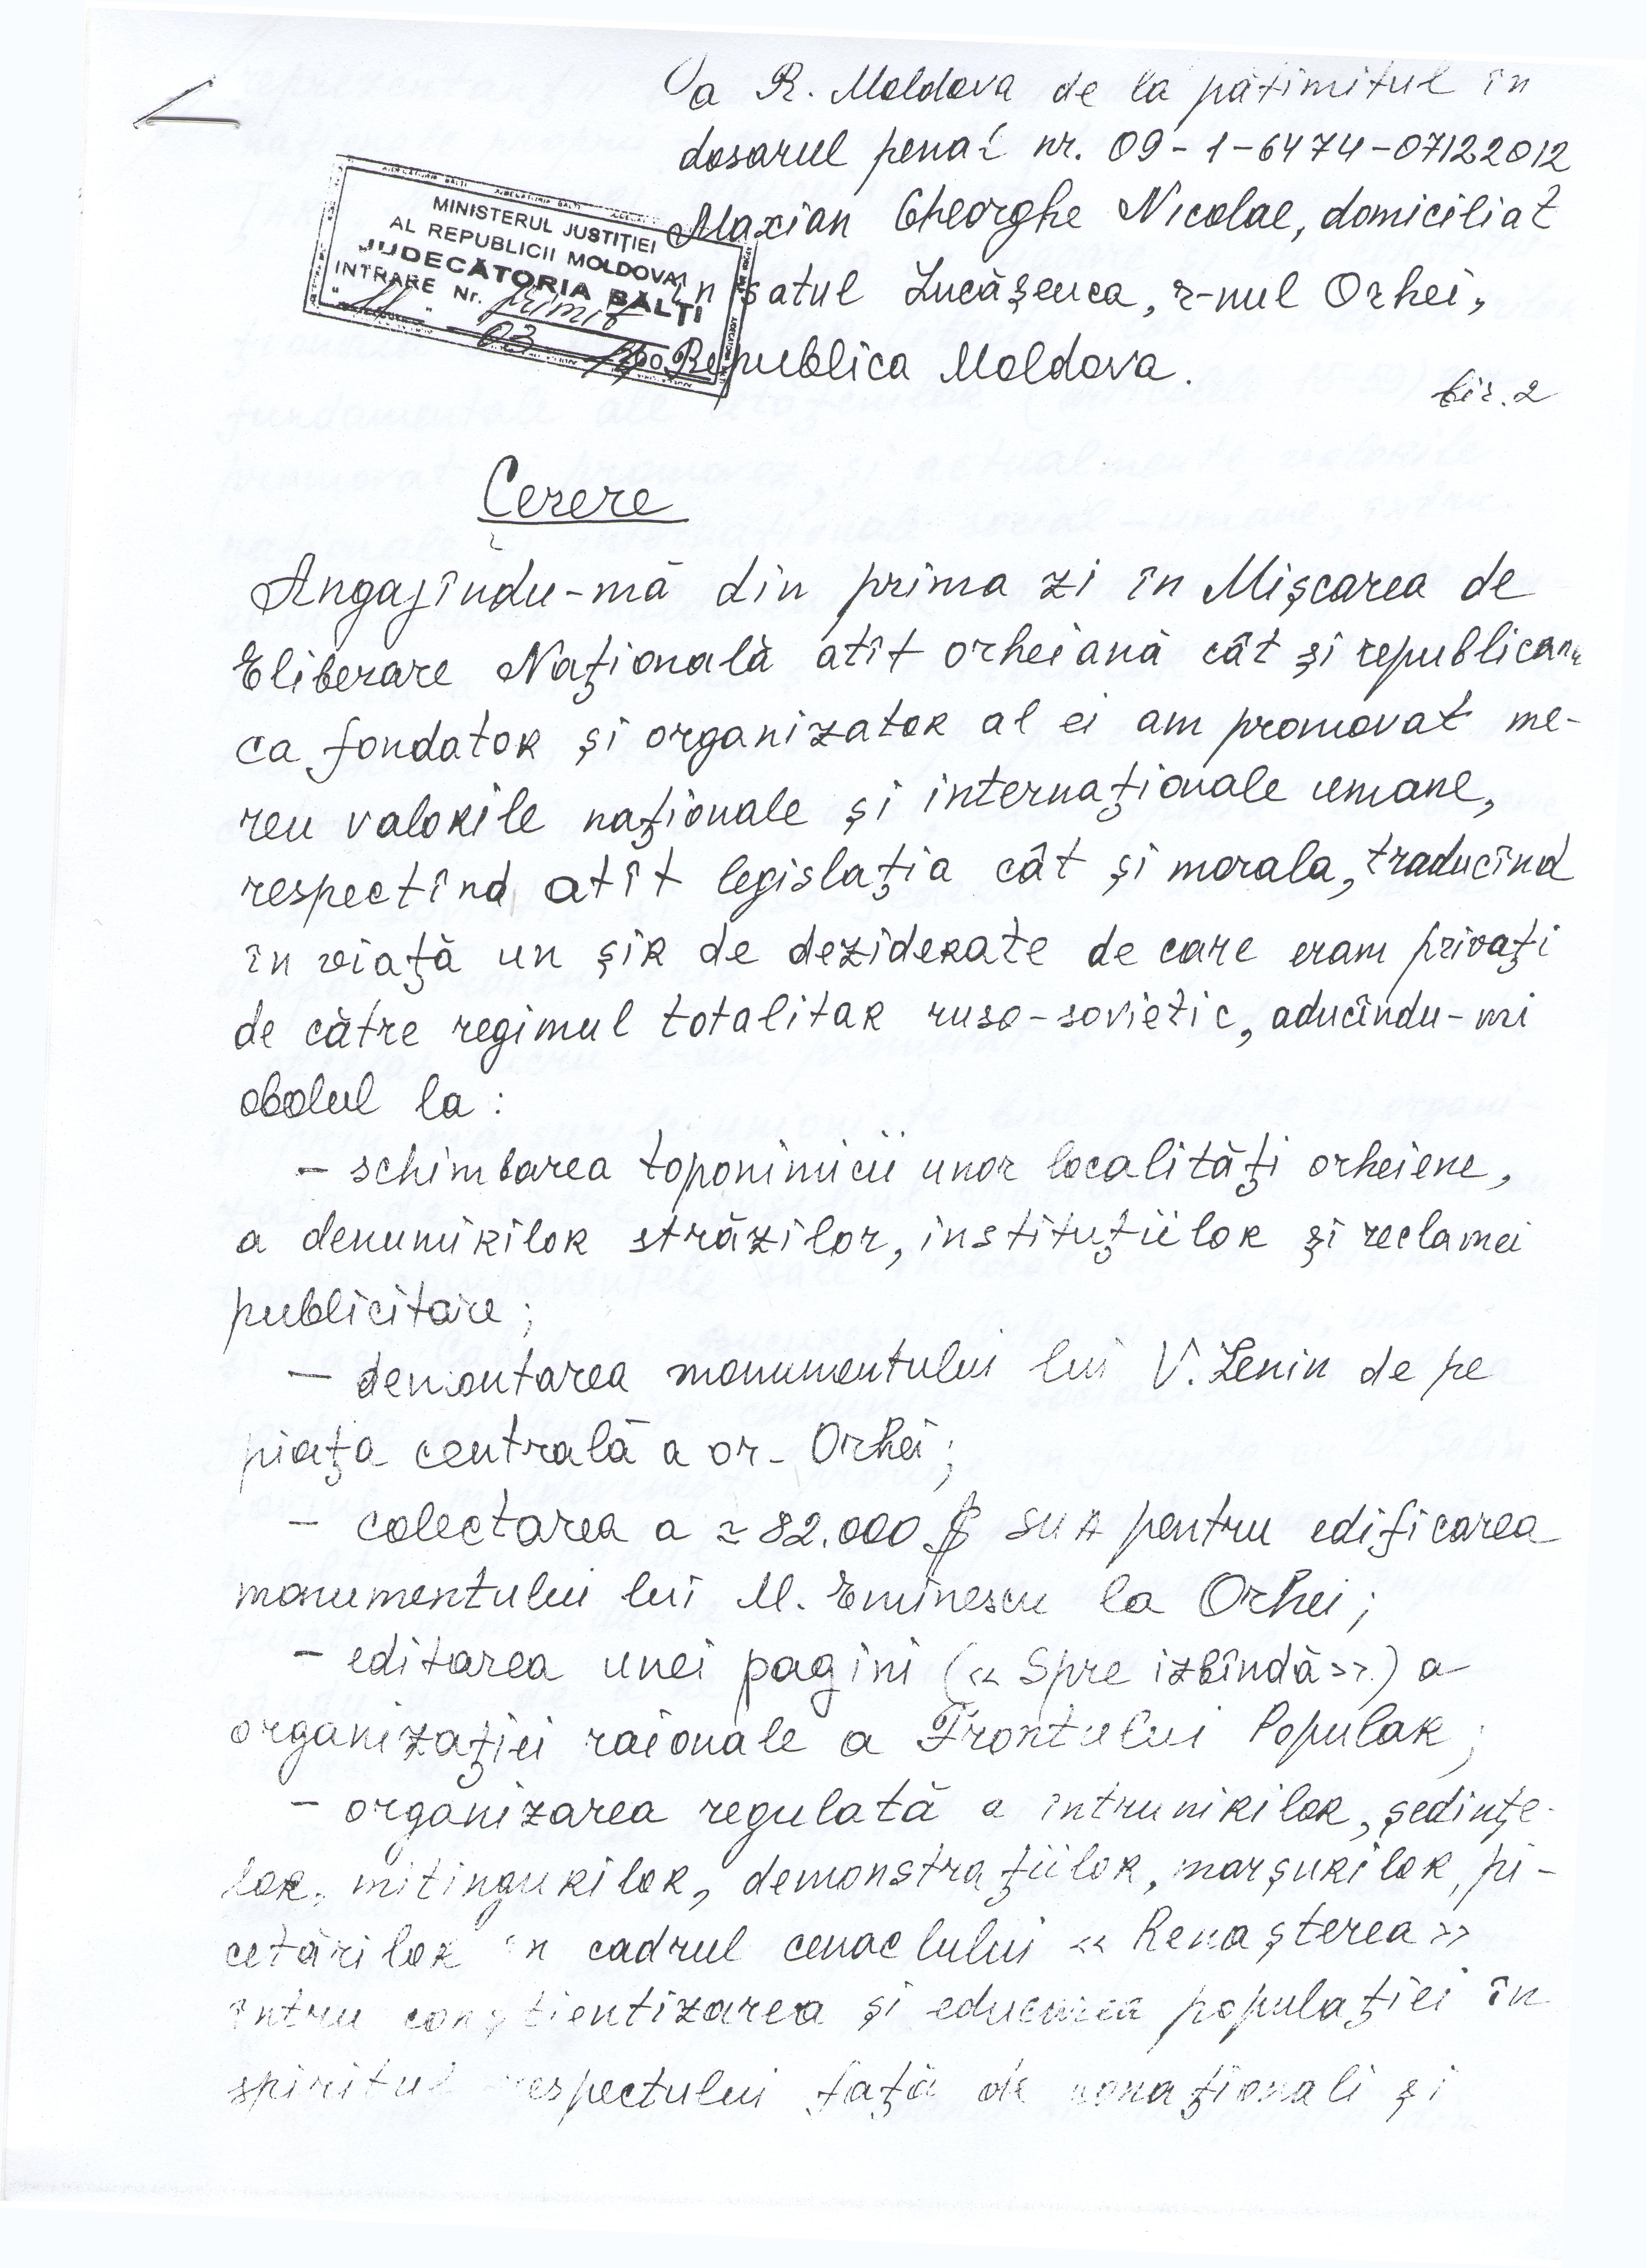 a R. Moldova de la pătimitul în
dosarul penal nr. 09-1-6474-07122012
Maxian Gheorghe Nicolae, domiciliat
în satul Lucăşeuca, r-nul Orhei,
Republica Moldova.
bir. 2
MINISTERUL JUSTIŢIEI
AL REPUBLICII MOLDOVA
JUDECĂTORIA BĂLŢI
INTRARE Nr. primit
"11" 03 200
Cerere
Angajîndu-mă din prima zi în Mişcarea de
Eliberare Naţională atît orheiană cât şi republicană
ca fondator şi organizator al ei am promovat me-
reu valorile naţionale şi internaţionale umane,
respectînd atît legislaţia cât şi morala, traducînd
în viaţă un şir de deziderate de care eram privaţi
de către regimul totalitar ruso-sovietic, aducîndu-mi
obolul la:
- schimbarea toponimicii unor localităţi orheiene,
a denumirilor străzilor, instituţiilor şi reclamei
publicitare;
- demontarea monumentului lui V. Lenin de pe
piaţa centrală a or. Orhei;
- colectarea a ≈ 82.000 $ SUA pentru edificarea
monumentului lui M. Eminescu la Orhei;
- editarea unei pagini («Spre izbîndă») a
organizaţiei raionale a Frontului Popular;
- organizarea regulată a întrunirilor, şedinţe-
lor, mitingurilor, demonstraţiilor, marşurilor, pi-
cetărilor în cadrul cenaclului «Renaşterea»
întru conştientizarea şi educarea populaţiei în
spiritul respectului faţă de conaţionali şi